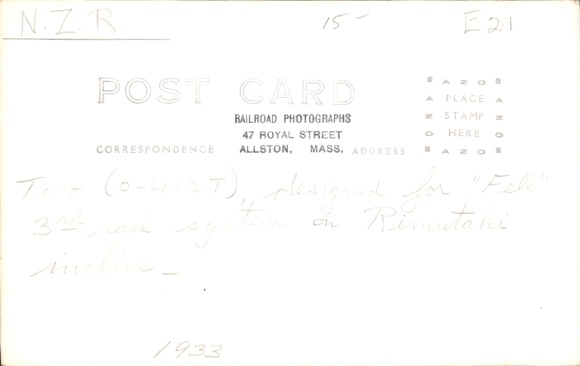 N.Z.R 15- E21
POST CARD
RAILROAD PHOTOGRAPHS
47 ROYAL STREET
ALLSTON, MASS.
CORRESPONDENCE
ADDRESS
AZO
PLACE
STAMP
HERE
AZO
Two (0-4-2T), designed for "Fell"
3rd rail system on Rimutaki
incline -
1933